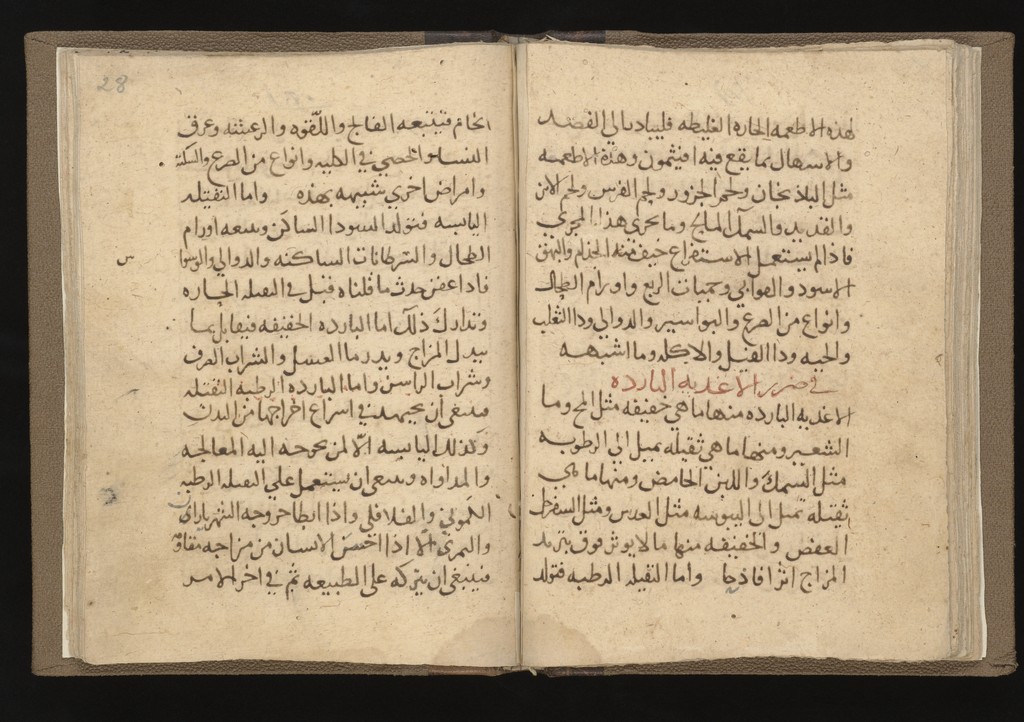 لهذه الاطعمه الحاره الغليظه فليبادر الى الفصد
والاسهال بما يقع فيه افيثمون وهذه الاطعمه
مثل الباذنجان ولحم الجزور ولحم الفرس ولحم الابن
والقديد والسمك المالح وما يجرى هذا المجرى
فاذا لم يستعمل الاستفراغ خيف منه الجذام والبهق
الاسود والقوابي وحميات الربع واورام الطحال
وانواع من الصرع والبواسير والدوالي ودا الثعلب
والحيه ودا الفيل والاكله وما اشبهه
في ضرر الاغذيه البارده
الاغذيه البارده منها ما هي خفيفه مثل المج وما
الشعير ومنها ما هي ثقيله تميل الى الرطوبه
مثل السمك واللبن الحامض ومنها ما هي
ثقيله تميل الى اليبوسه مثل العدس ومثل السفرجل
العفص والخفيفه منها ما لا يوثر فوق تبريد
المزاج اثرا فادحا واما الثقيله الرطبه فتولد
28
الخام فيتبعه الفالج واللقوه والرعشه وعرق
النسا والحصي في الكليه وانواع من الصرع والسكته
وامراض اخرى شبيهه بهذه واما الثقيله
اليابسه فتولد السودا الساكن ويتبعه اورام
الطحال والسرطانات الساكنه والدوالي والوسوا
س
فاذا عفن حدث ما قلناه قبل في الثقيله الحاره
وتدارك ذلك اما البارده الخفيفه فيقابل بما
يبدل المزاج ويدر ما العسل والشراب الصرف
وشراب الراسن واما البارده الرطبه الثقيله
فينبغى ان يجتهد في اسراع اخراجها من البدن
وكذلك اليابسه الا لمن يحوجه اليه المعالجه
والمداواه وينبغى ان يستعمل على الثقيله الرطبه
الكموني والفلافلي واذا ابطا خروجه الشهرياران
والتمرى الا اذا احس الانسان من مزاجه مقاومه
فينبغى ان يتركه على الطبيعه ثم في اخر الامر